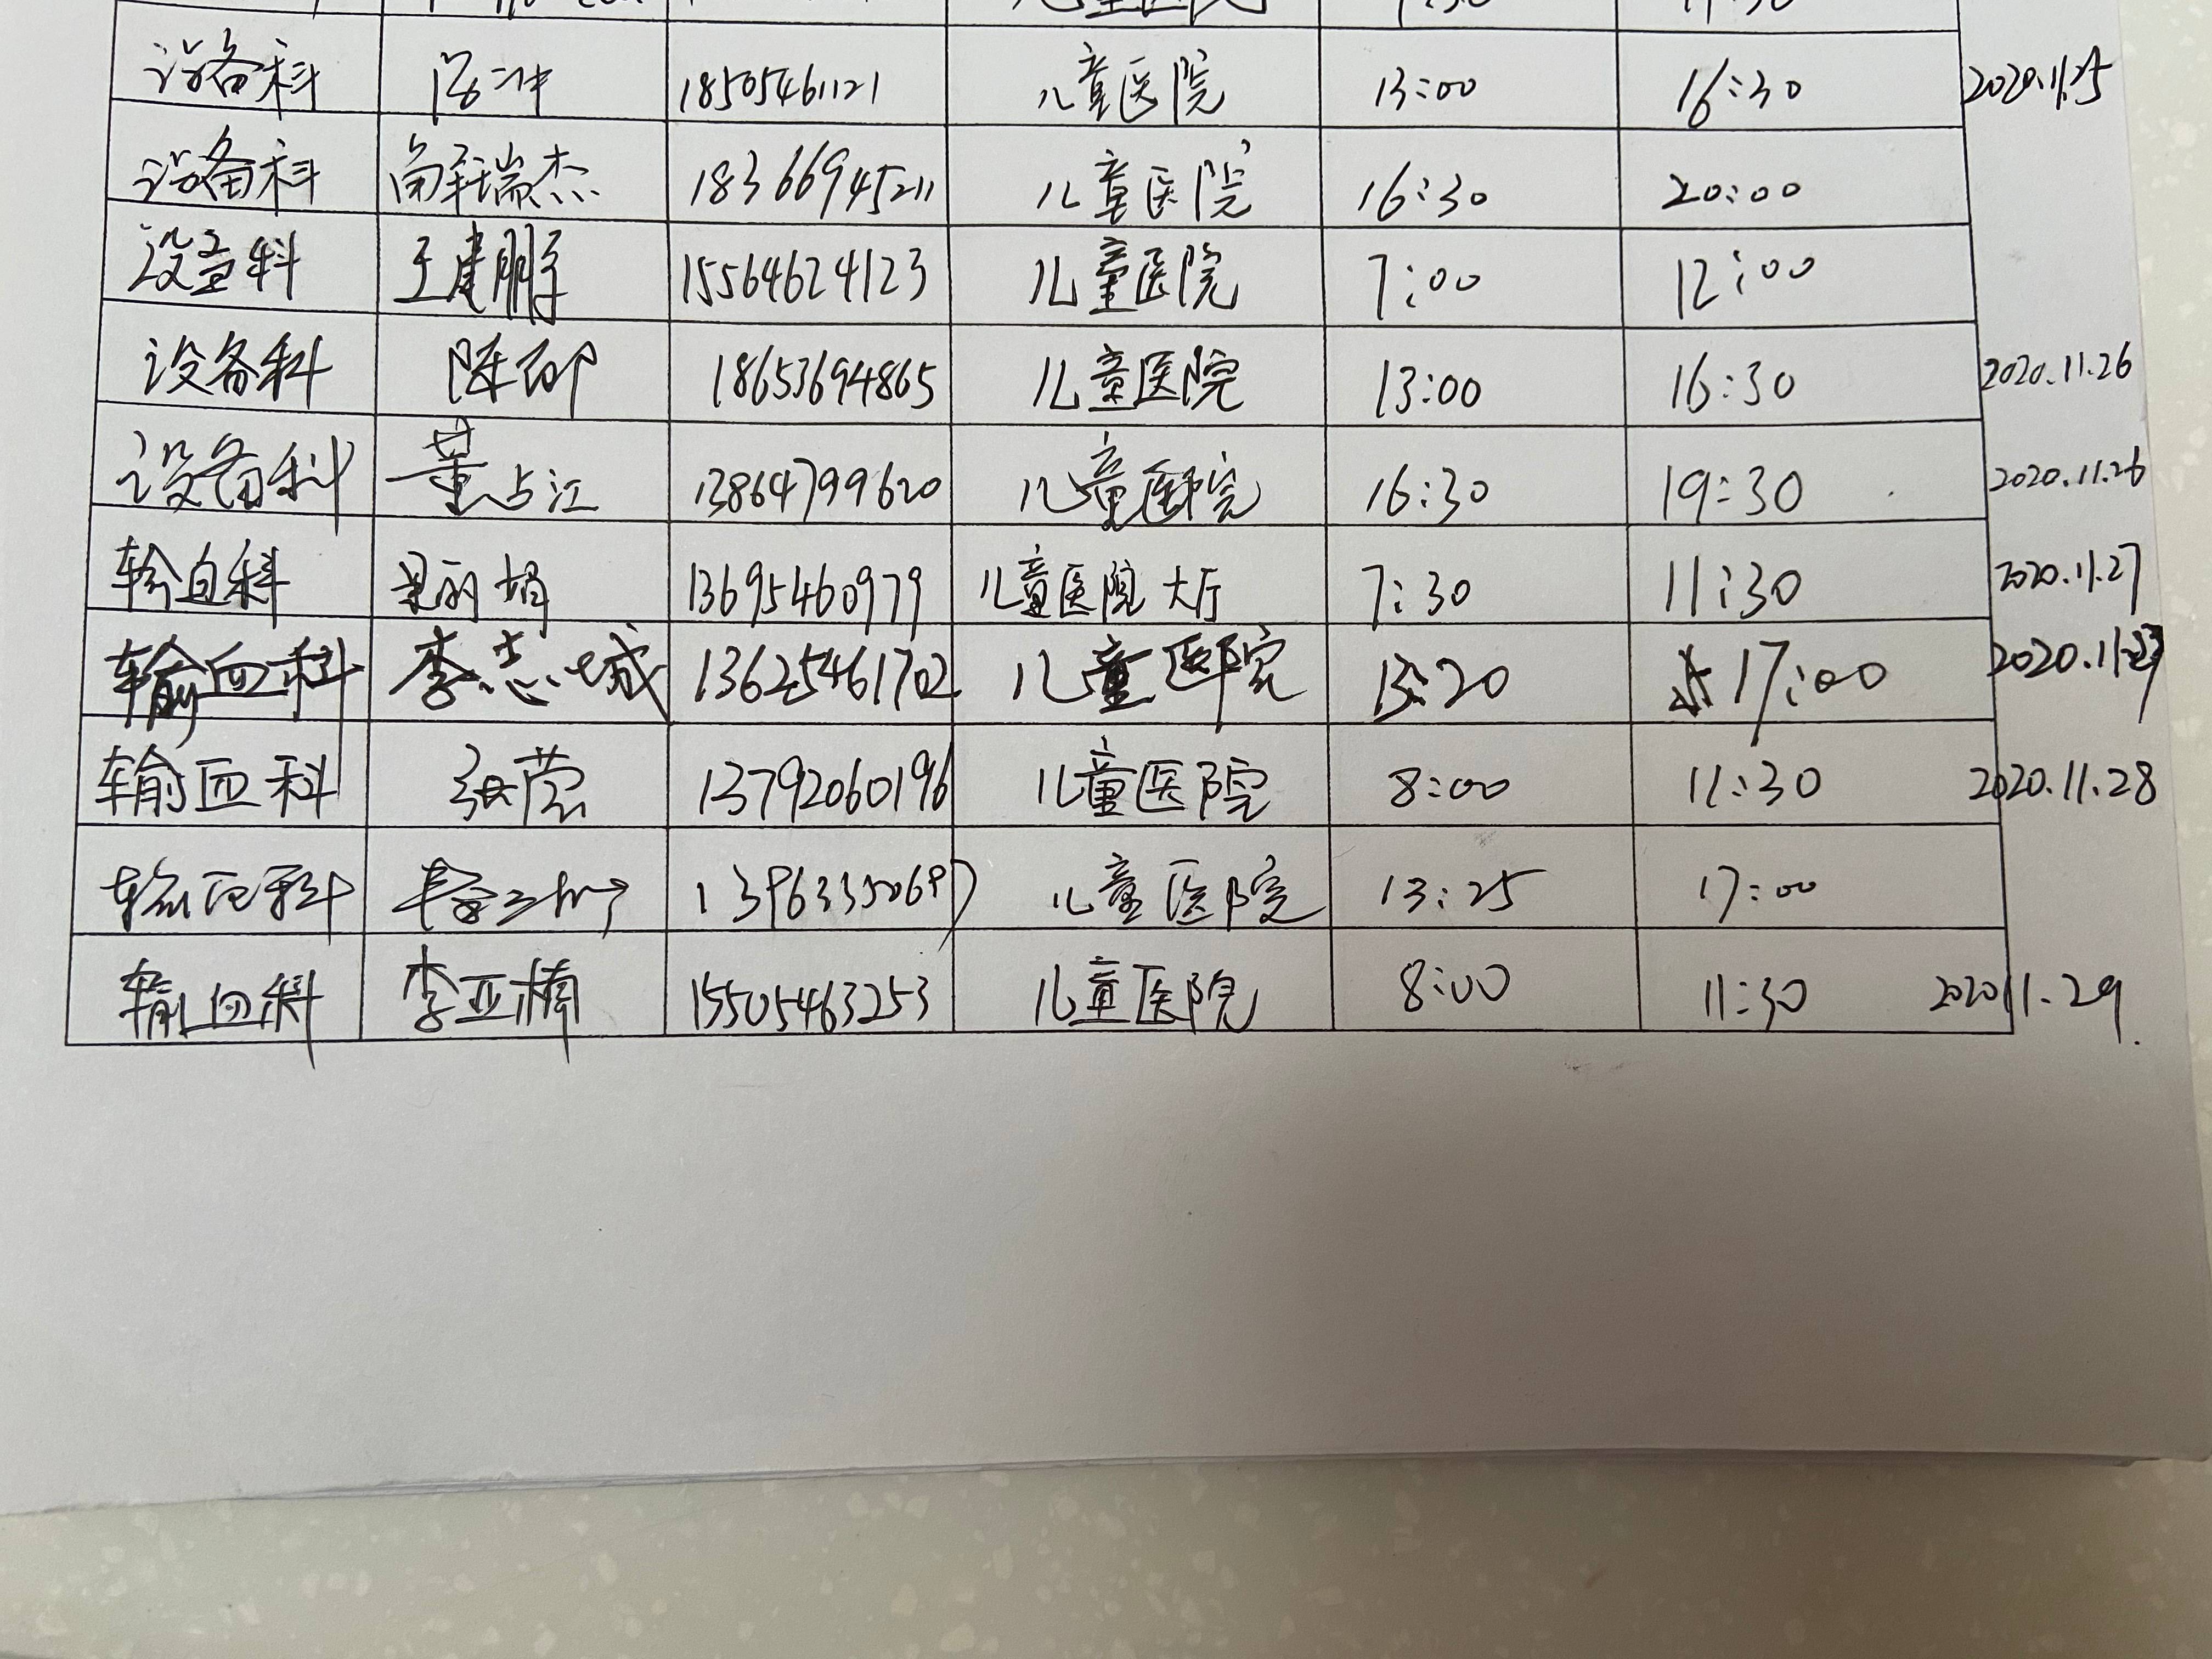 儿童医院
设备科 冲 18505461121 儿童医院 13:00 16:30 2020.11.25
设备科 瑞杰 18366945211 儿童医院 16:30 20:00
设备科 王建鹏 15564624123 儿童医院 7:00 12:00
设备科 陈 18653694865 儿童医院 13:00 16:30 2020.11.26
设备科 董占江 13864799620 儿童医院 16:30 19:30 2020.11.26
输血科 丽娟 13695460979 儿童医院大厅 7:30 11:30 2020.11.27
输血科 李志城 13625461702 儿童医院 13:20 17:00 2020.11.27
输血科 张莹 13792060196 儿童医院 8:00 11:30 2020.11.28
输血科 儿童医院 13:25 17:00
输血科 李亚楠 15505463253 儿童医院 8:00 11:30 2020 11.29.